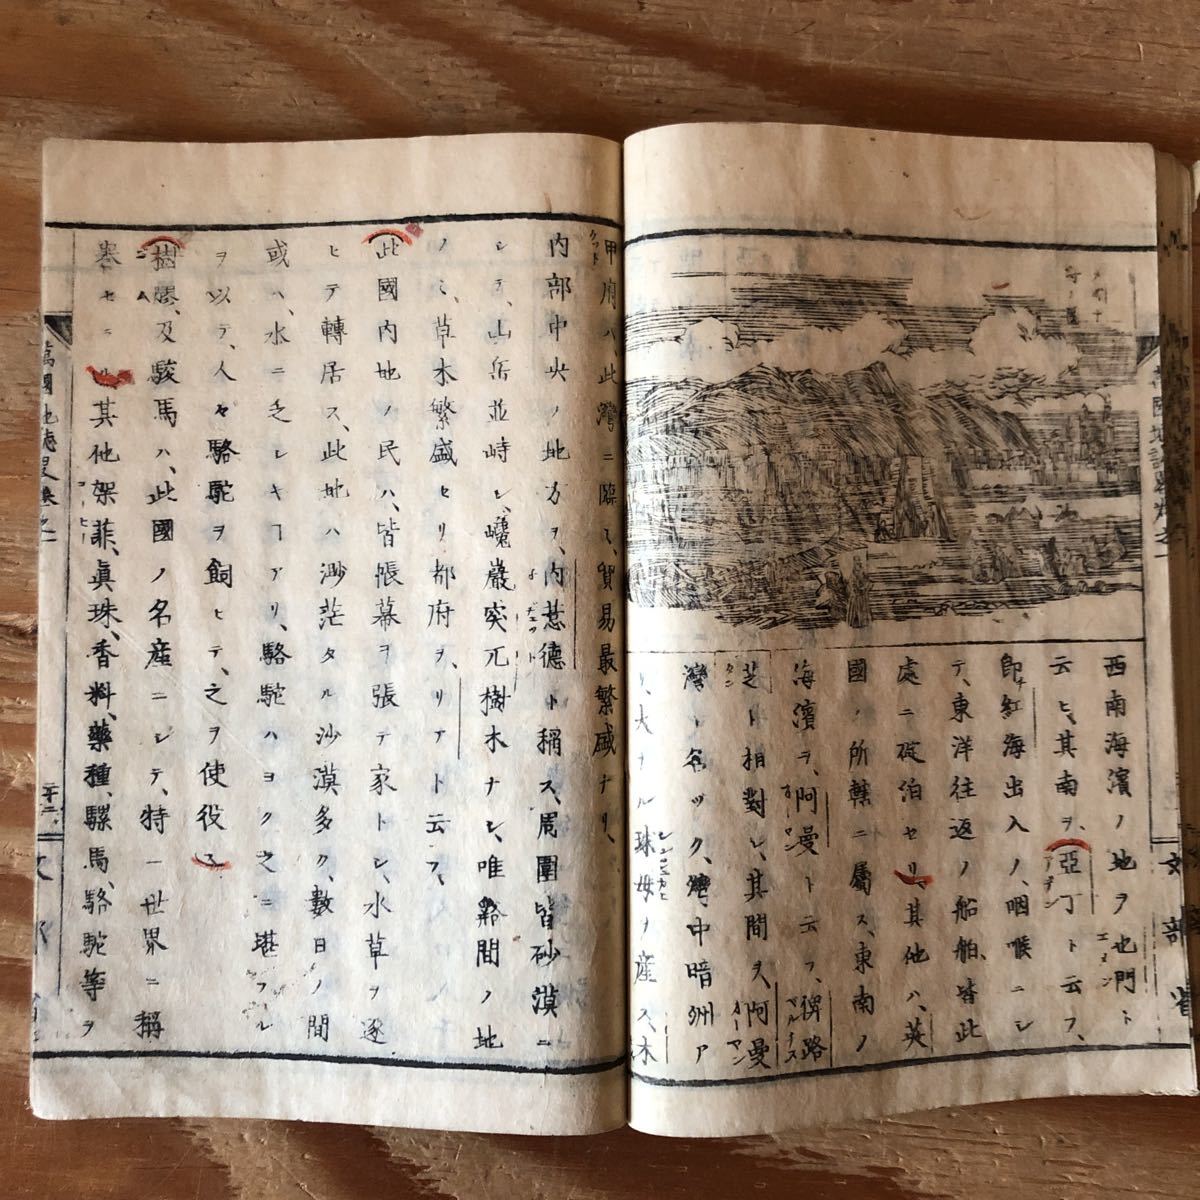 西南海濱ノ地ヲ也門ト
エメン
云ヒ、其南ヲ、亞丁ト云フ、
アデン
即チ紅海出入ノ、咽喉ニシ
テ、東洋往返ノ船舶、皆此
處ニ碇泊セリ、其他ハ、英
國ノ所轄ニ屬ス、東南ノ
海濱ヲ、阿曼ト云フ、俾路
芝ト相對シ、其間ヲ、阿曼
灣ト名ヅク、灣中暗洲ア
リ、大ナル珠母ヲ産ス、木
甲府ハ、此灣ニ臨ミ、貿易最繁盛ナリ、
内部中央ノ地方ヲ、内惹德ト稱ス、周圍皆砂漠ニ
シテ、山岳並峙シ、巉巖突兀樹木ナシ、唯谿間ノ地
ノミ、草木繁盛セリ都府ヲ、リアト云フ、
此國内地ノ民ハ、皆帳幕ヲ張テ家トシ、水草ヲ逐
ヒテ轉居ス、此地ハ渺茫タル沙漠多ク、數日ノ間
或ハ、水ニ乏シキコアリ、駱駝ハヨク之ニ堪フル
ヲ以テ、人々駱駝ヲ飼ヒテ、之ヲ使役ス
樹膠、及駿馬ハ、此國ノ名産ニシテ、特ニ世界ニ稱
其他架菲、眞珠、香料、藥種、騾馬、駱駝等ヲ
文部省